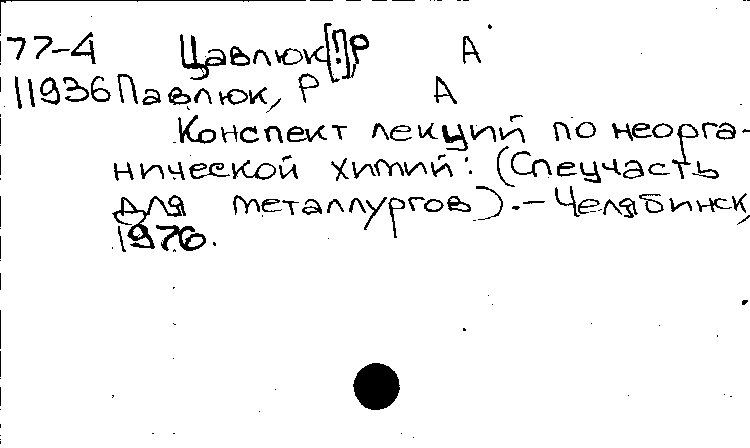 77-4 Цавлюк[!], Р А
11936 Павлюк, Р А
Конспект лекций по неорга-
нической химий: (Спецчасть
для металлургов).-Челябинск,
1976.